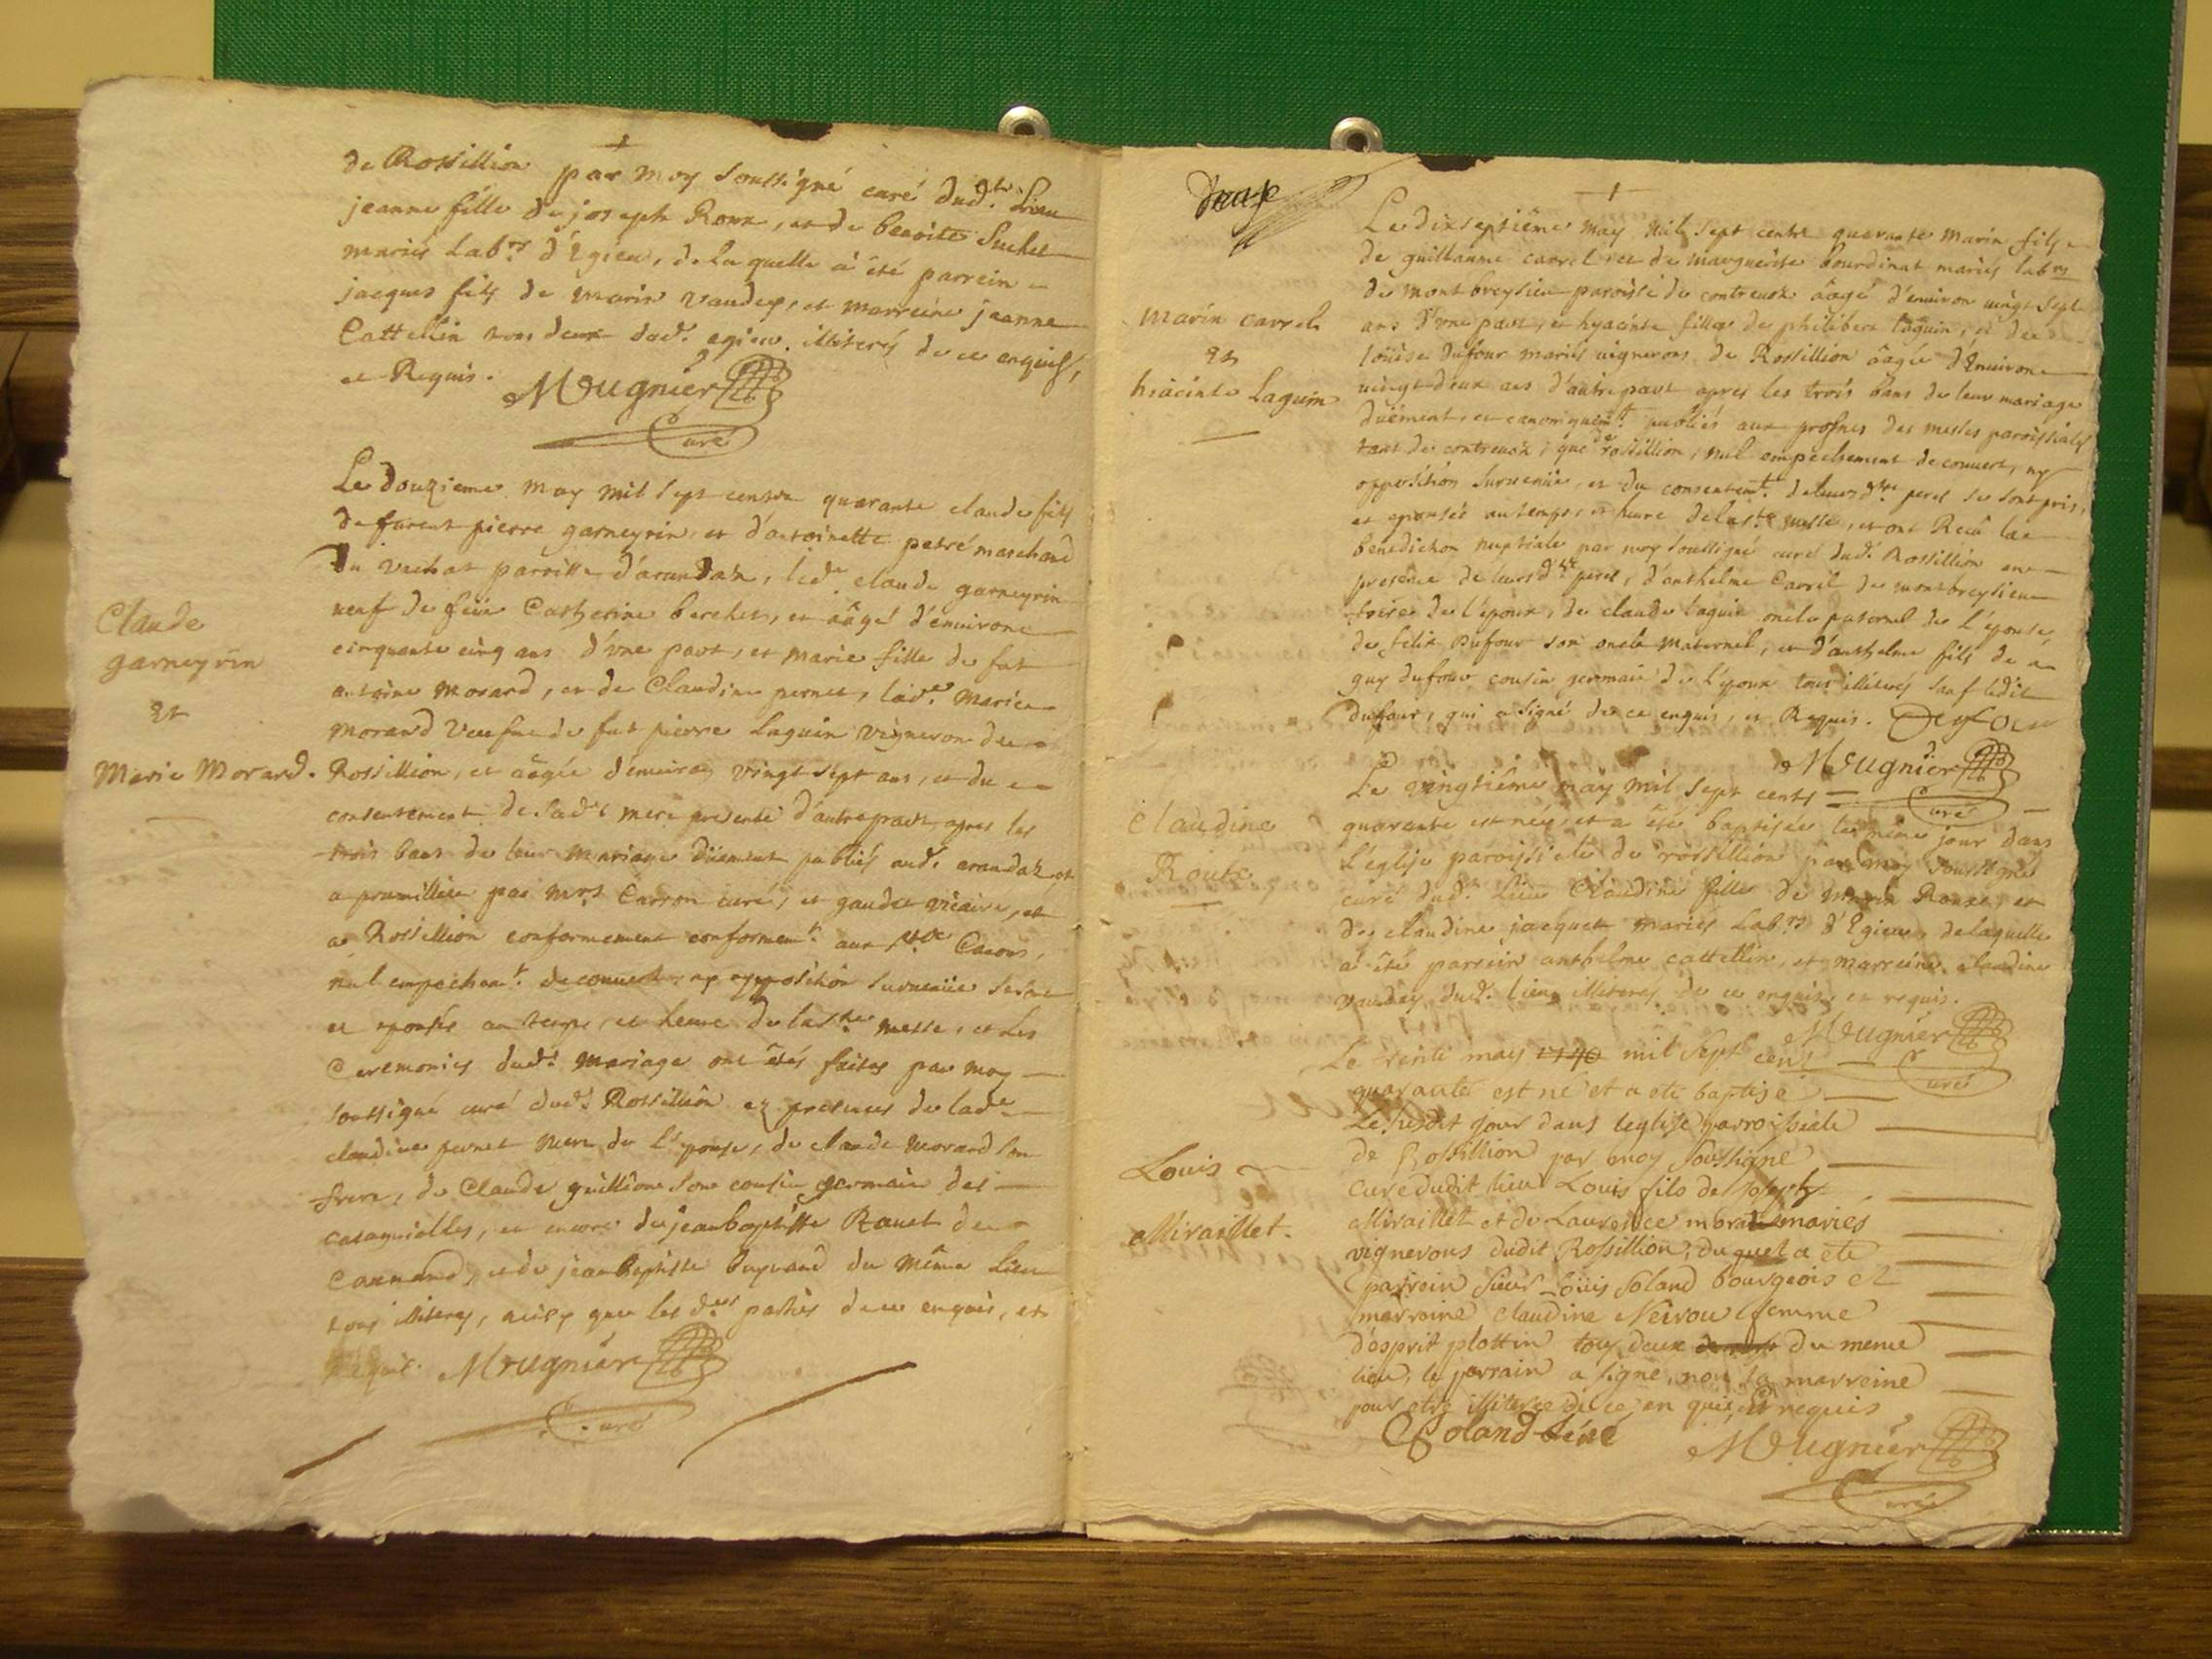 de Rossillion par moy soussigné curé dud.t Lieu
jeanne fille de joseph Roux, et de benoite Suchet
mariés Lab.rs d'Egieu, de laquelle à été parrein
jacques fils de marin vaudey, et marreine jeanne
Cattellin tous deux dud. egieu. illiterés de ce enquis,
et Requis. Meugnier
Curé
Claude
garneyrin
et
Marie Morard.
Le douzieme may mil sept cents quarante claude fils
de furent pierre garneyrin, et d'antoinette petré marchand
du vachat parroisse d'arandaz, led.t claude garneyrin
veuf de feüe Catherine berchet, et âagé d'environ
cinquante cinq ans d'vne part, et marie fille de fut
antoine morard, et de Claudine pernet, lad.e Marie
morard veufue de fut pierre Laguin vigneron de
Rossillion, et âagée d'environ vingt sept ans, et du
consentement de Sad.e mere presente d'autre part, apres les
trois bans de leur mariage düement publiés aud. arandaz et
a prumillieu par M.rs Carron curé, et gaudet vicaire, et
a Rossillion conformement conformem.t aux S.ts Canons,
nul empecham.t decouvert, ny opposition survenüe se sont
et epousés au temps, et heure de la S.te messe, et les
Ceremonies dud.t mariage ont étés faites par moy
soussigné curé dud.t Rossillion en presence de lad.e
claudine pernet mere de l'epouse, de claude morard son
frere, de Claude guillion son cousin germain des
catagnolles, et encore de jean baptiste Ravet de
et de jean baptiste du même Lieu
tous illiterés, ainsy que les d.es parties de ce enquis, et
Requis. Meugnier
Curé
Marin carrel
et
hiacinte Laguin
Le dixseptième may mil sept cents quarante Marin fils
de guillaume carrel et de marguerite bourdinat mariés lab.rs
de montbreysieu paroisse de contrevoz âagé d'environ vingt sept
ans d'vne part, et hyacinte fille de philibert laguin, et de
loüise dufour mariés vignerons de Rossillion âagée d'Environ
vingt deux ans d'autre part apres les trois bans de leur mariage
düement, et canoniquem.t publiés aux prosnes des messes paroissiales
tant de contrevoz, que de rossillion, nul empechement decouvert, ny
opposition survenüe, et du consentem.t de leurs d.ts peres se sont pris,
et epousés au temps, et heure de la S.te messe, et ont Reçu la
benediction nuptiale par moy soussigné curé dud. Rossillion en
presence de leurs d.ts peres, d'anthelme Carrel de montbreysieu
frere de l'epoux, de claude laguin oncle paternel de L'epouse,
de felix Dufour son oncle maternel, et d'anthelme fils de
guy dufour cousin germain de L'epoux tous illiterés sauf ledit
dufour, qui a signé de ce enquis, et Requis. Dufour
Meugnier
Curé
Claudine
Roux
Le vingtième may mil sept cents
quarante est née, et a été baptisée le même jour dans
L'eglise paroissiale de rossillion par moy soussigné
curé dud. Lieu Claudine fille de marin Roux, et
de claudine jacquet mariés Lab.rs d'Egieu, de laquelle
a été parrein anthelme cattellin, et marreine claudine
vaudey dud. Lieu illiterés de ce enquis, et requis.
Meugnier
Curé
Louis
Miraillet.
Le trente may 1740 mil sept cent
quarante est né et a eté baptisé
Le susdit jour dans leglise parroissiale
de Rossillion par moy soussigné
curé dudit lieu Louis fils de joseph
Miraillet et de Laurence mbrat maries
vignerons dudit Rossillion, duquel a eté
parrein sieur Loüis Soland bourgeois et
marreine claudine Neirou femme
d'esprit plottin tous deux du meme
lieu, le parrain a signé, non la marreine
pour etre illiterée de ce en quis, et requis
Soland Meugnier
Curé